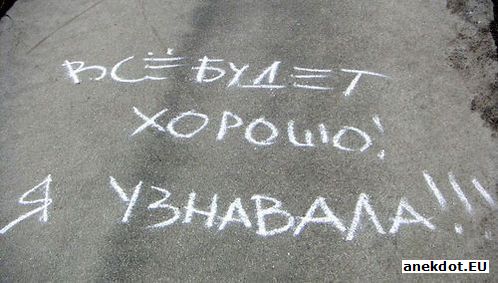 ВСЁ БУДЕТ
ХОРОШО!
Я УЗНАВАЛА!!!
anekdot.EU